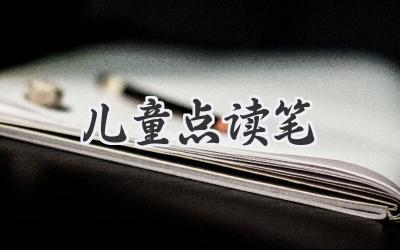 儿童点读笔